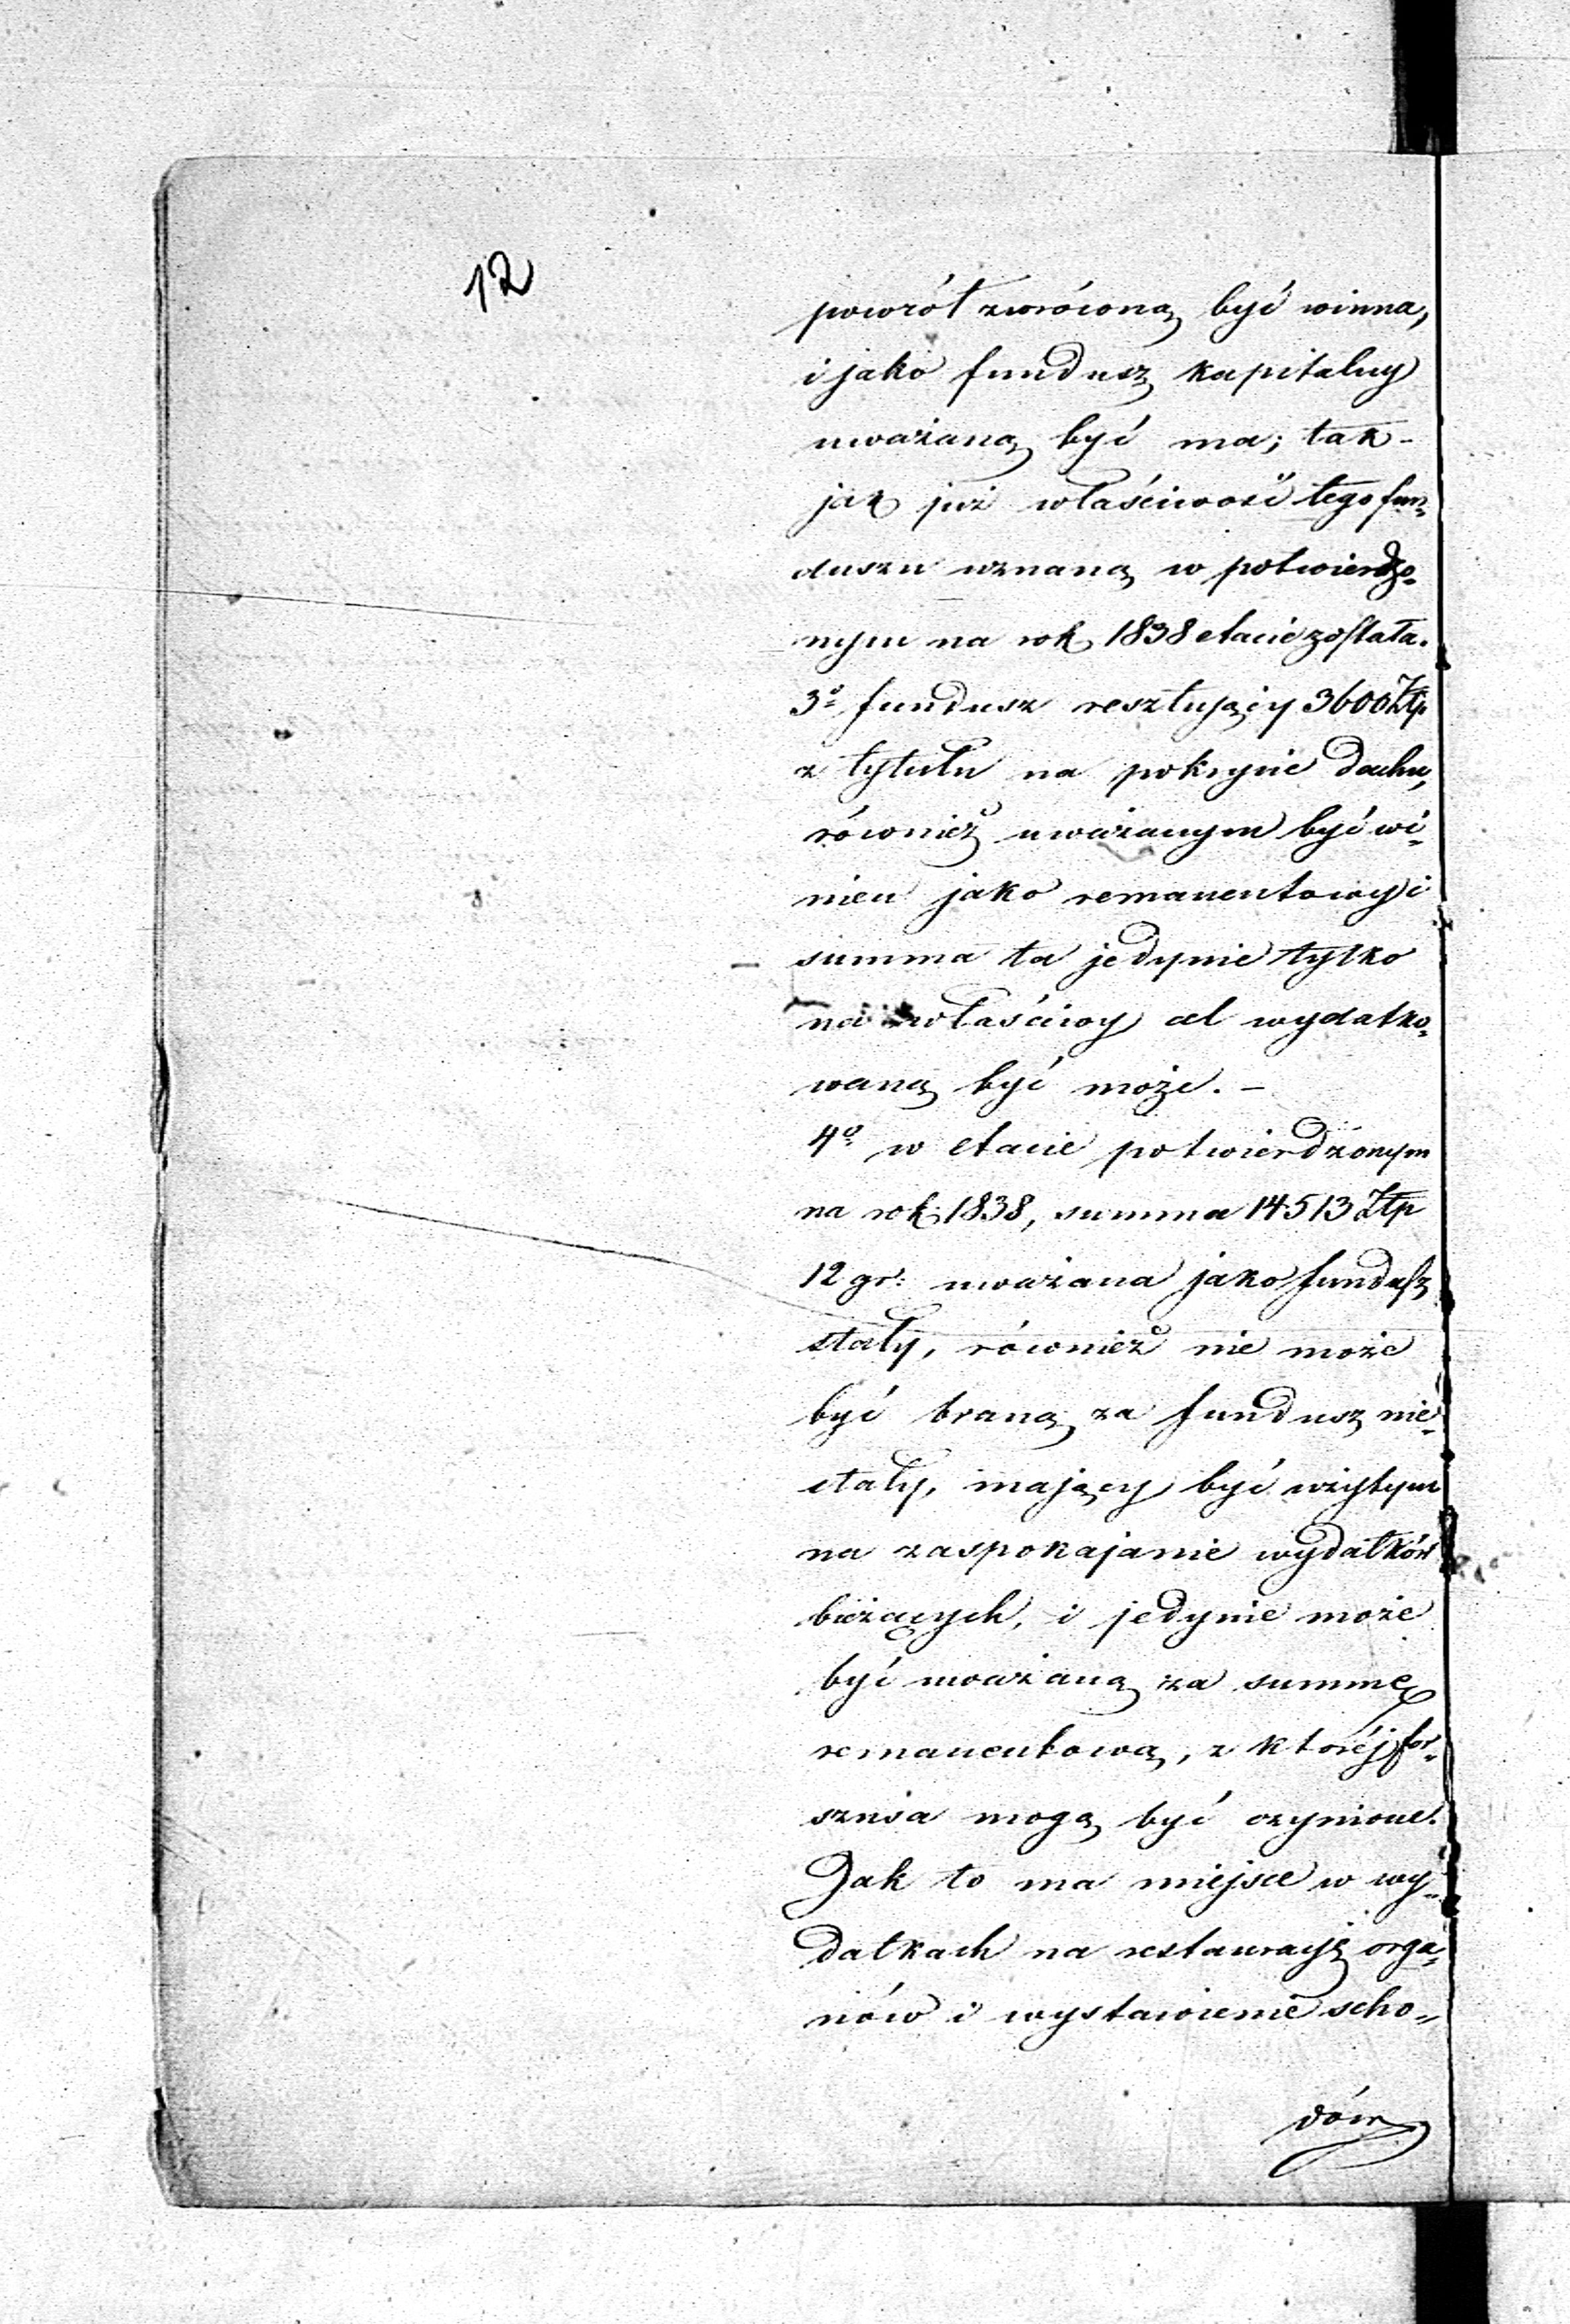 12
powrót zwróconą być winna,
i jako fundusz kapitalny
uważaną być ma; tak -
jak już właściwość tego fun=
duszu uznaną w potwierdzo=
nym na rok 1838 etacie została.
3º fundusz resztujący 3600 Złp
z tytułu na pokrycie dachu,
również uważanym być wi=
nien jako remanentowy i
summa ta jedynie tylko
na właściwy cel wydatko=
waną być może. –
4º w etacie potwierdzonym
na rok 1838, summa 14513 Złp
12 gr: uważana jako fundusz
stały, również nie może
być braną za fundusz nie=
stały, mający być użytym
na zaspokajanie wydatków
bieżących, i jedynie może
być uważaną za summę
remanentową, z któréj for=
szusa mogą być czynione.
Jak to ma miejsce w wy=
datkach na restauracyę orga=
nów i wystawienie scho=
dów